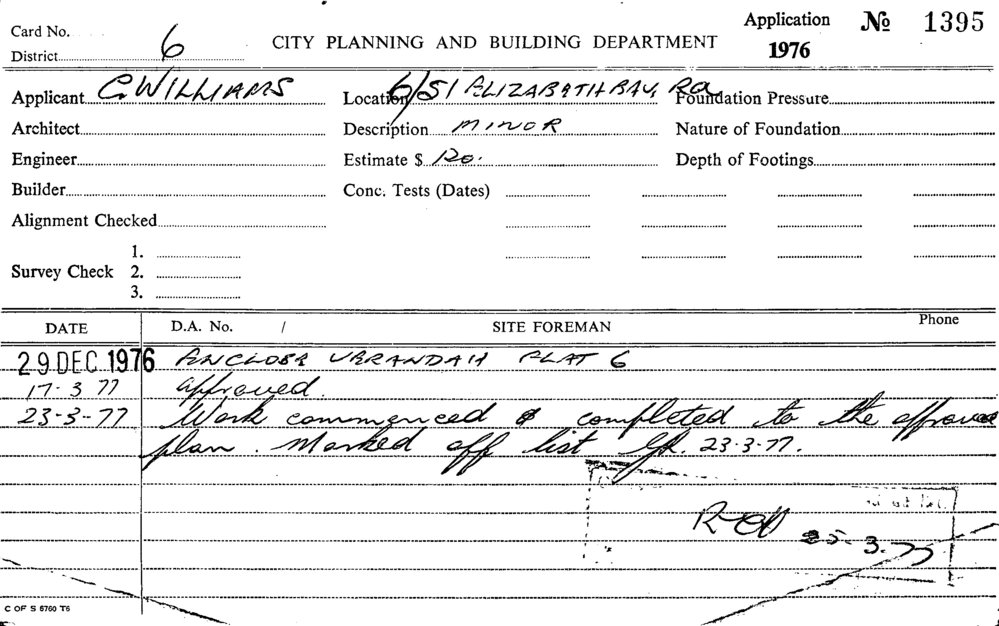 Card No.
District 6
CITY PLANNING AND BUILDING DEPARTMENT
Application № 1395
1976
Applicant C. WILLIAMS Location 6/51 ELIZABETH BAY RD Foundation Pressure
Architect Description MINOR Nature of Foundation
Engineer Estimate $ 120. Depth of Footings
Builder Conc. Tests (Dates)
Alignment Checked
1.
Survey Check 2.
3.
DATE D.A. No. / SITE FOREMAN Phone
29 DEC 1976 ENCLOSE VERANDAH FLAT 6
17-3 77 approved.
23-3-77 Work commenced & completed to the approved
plan. Marked off list 23-3-77.
25-3-77
C OF S 5760 T6